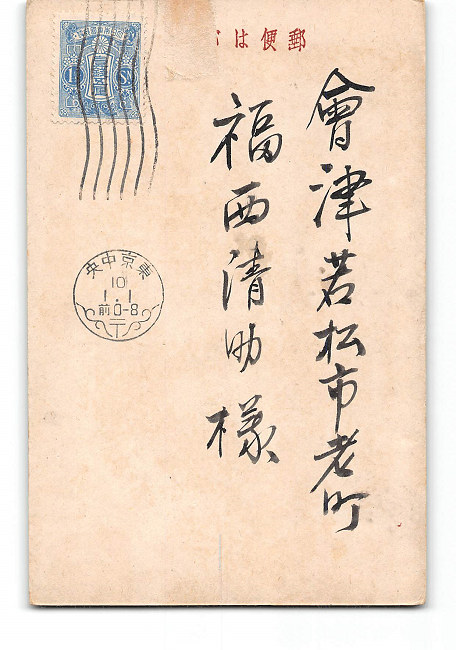 郵便は
會津若松市老町
福西清助様
東京中央
10
1.1
前0-8